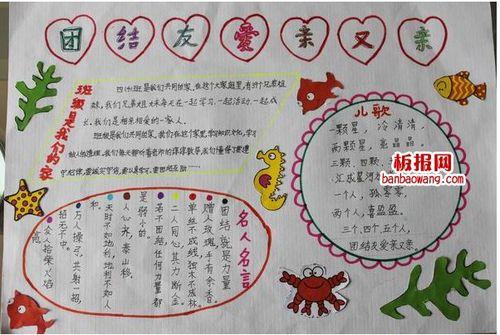 团结友爱亲又亲
班级是我们的家
四(4)班是我们共同的家,在这个大家庭里,有许多兄弟姐
妹,我们兄弟姐妹每天在一起学习,一起活动,一起成
长,我们是相亲相爱的一家人。
班级是我们共同的家,我们在这个家里,学习知识文化,学习
做人的道理。我们每天聆听着老师的谆谆教导,我们懂得了遵
守纪律
儿歌
一颗星,冷清清,
两颗星,亮晶晶,
三颗、四颗
江成星河
一个人,孤零零,
两个人,喜盈盈。
三个、四个、五个人,
团结友爱亲又亲。
板报网
banbaowang.com
名人名言
团结就是力量
赠人玫瑰,手有余香。
单丝不成线,独木不成林。
二人同心,其力断金。
若不团结,任何力量都
是弱小的。
人心齐,泰山移。
天时不如地利,地利不如人
和。
万人操弓,共射一招,
招无不中。
众人拾柴火焰
高